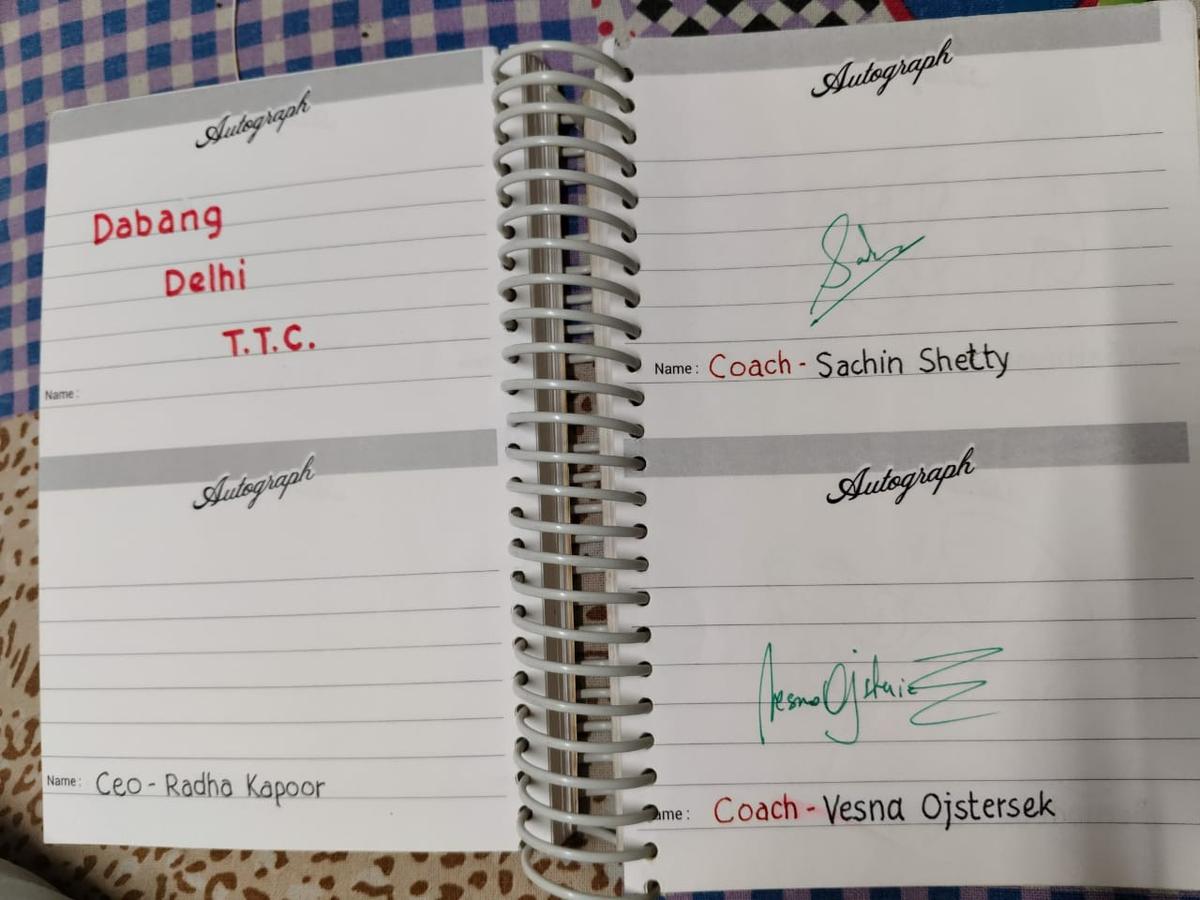 Autograph
Dabang
Delhi
T.T.C.
Name :
Autograph
Name : Ceo - Radha Kapoor
Autograph
Name : Coach - Sachin Shetty
Autograph
Vesna Ojster
ame : Coach - Vesna Ojstersek